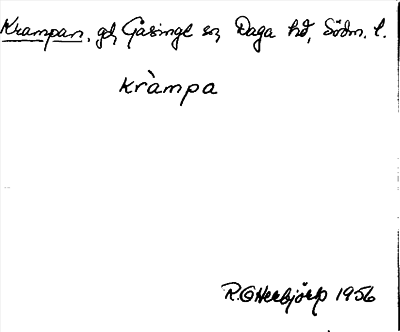 Krampan, gd, Gåsinge sn, Daga hd, Södm. l.
kràmpa
R.O Herbjörp 1956